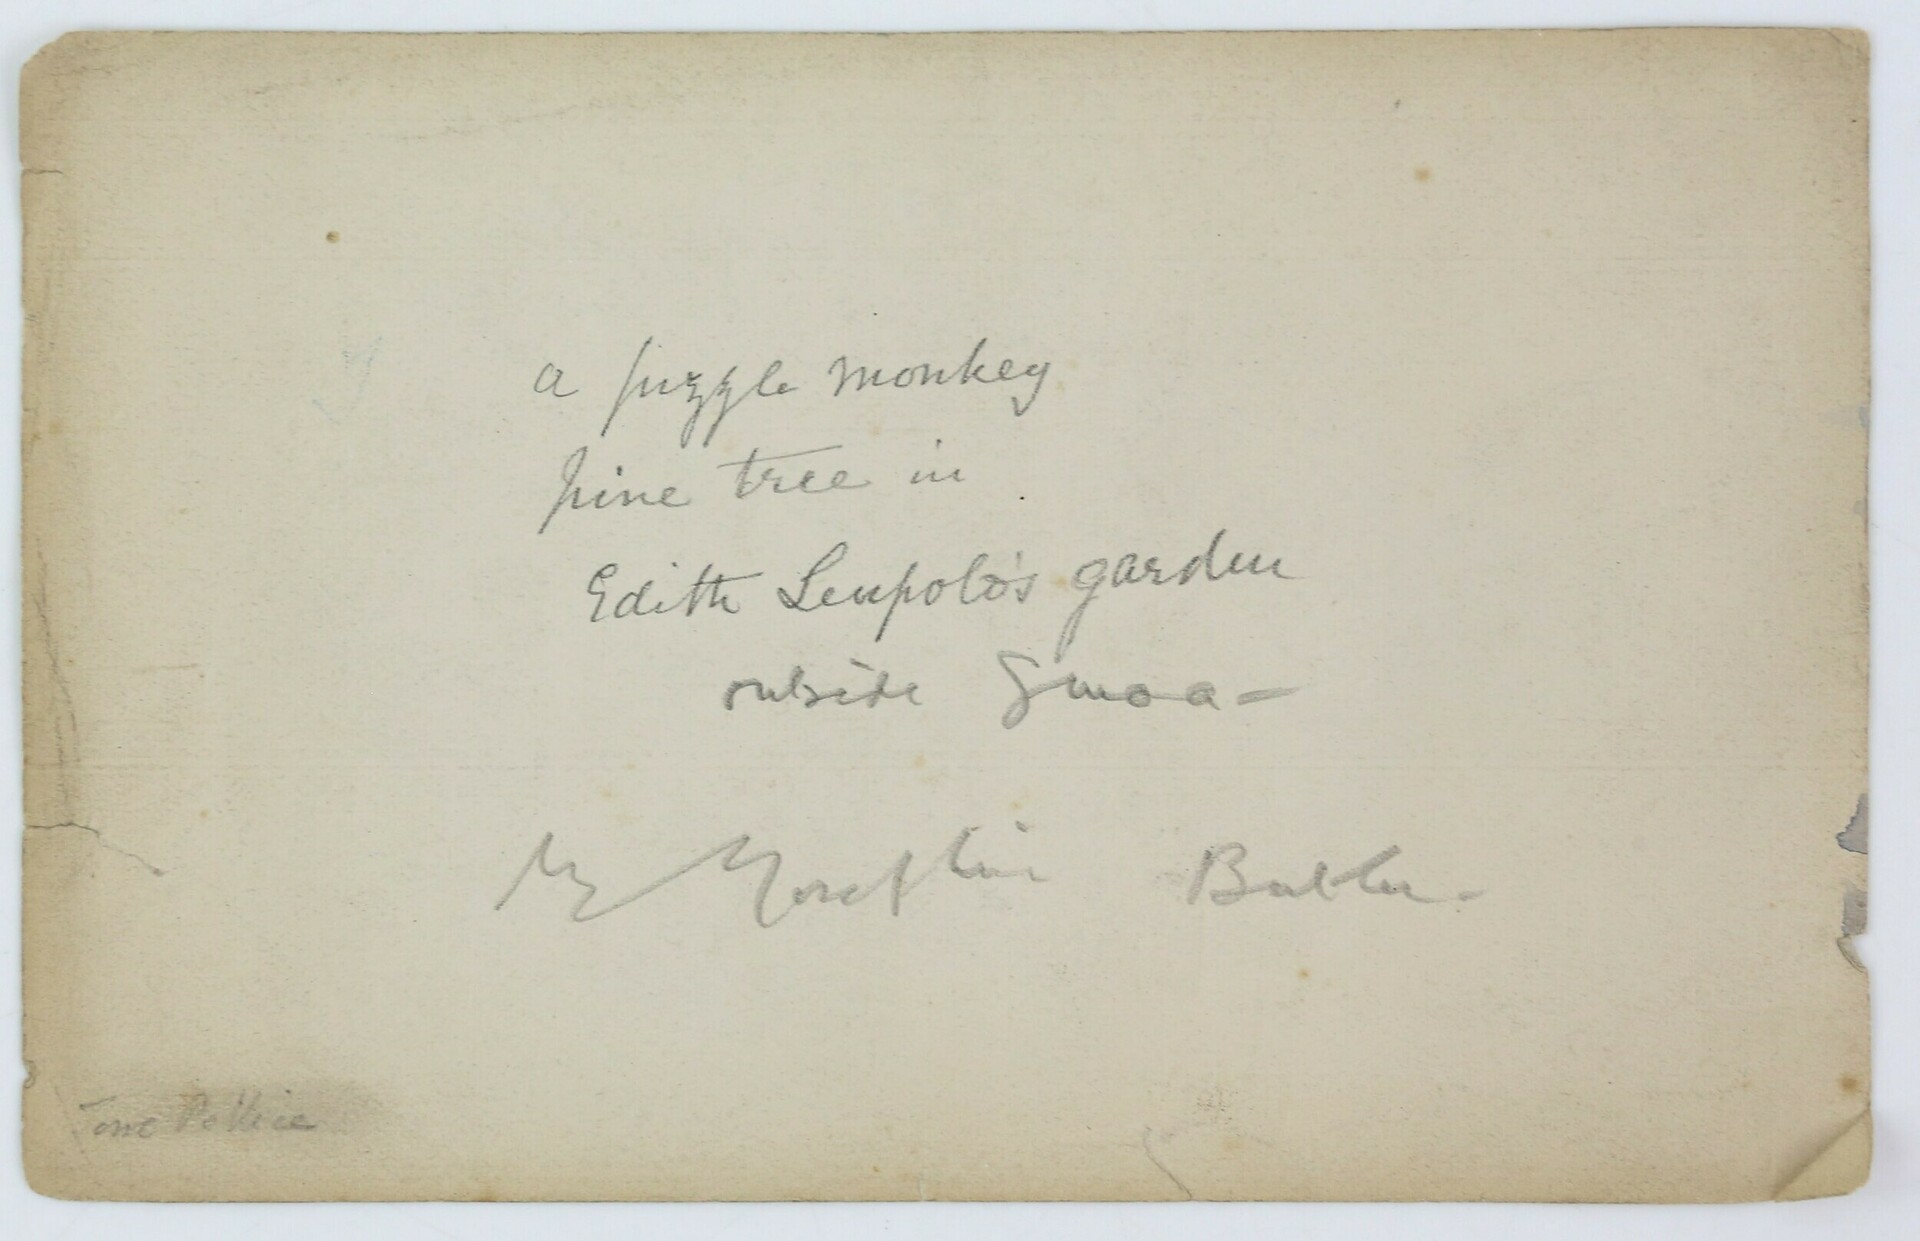 a puzzle monkey
pine tree in
Edith Leupold's garden
outside Genoa –
by Josephine Butler.